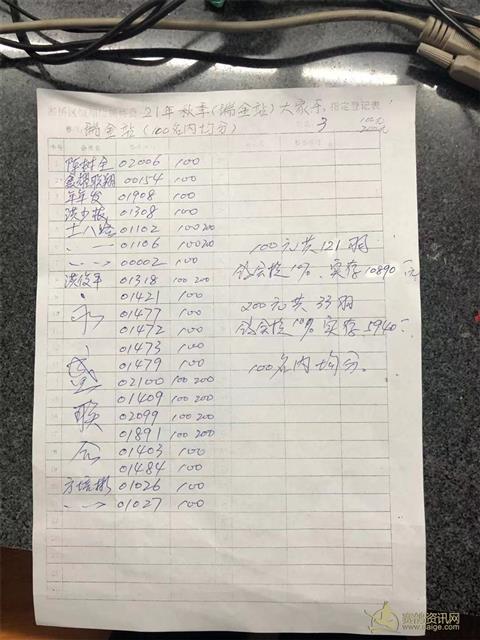 21年秋季(瑞金站)大家乐 指定登记表
瑞金站(100名内均分) 3 100元
200元
陈树全 02006 100
00154 100
年年发 01908 100
洪少 01308 100
士八路 01102 100 200
01106 100 200
00002 100
洪俊平 01318 100 200
01421 100
01477 100
01472 100
01473 100
01479 100
盛 02100 100 200
01409 100 200
联 02099 100 200
01891 100 200
01403 100
01484 100
方培 01026 100
01027 100
100元共121羽
鸽会提10% 实存10890元
200元共33羽
鸽会提10% 实存5940元
100名内均分。
赛鸽资讯网
www.saige.com